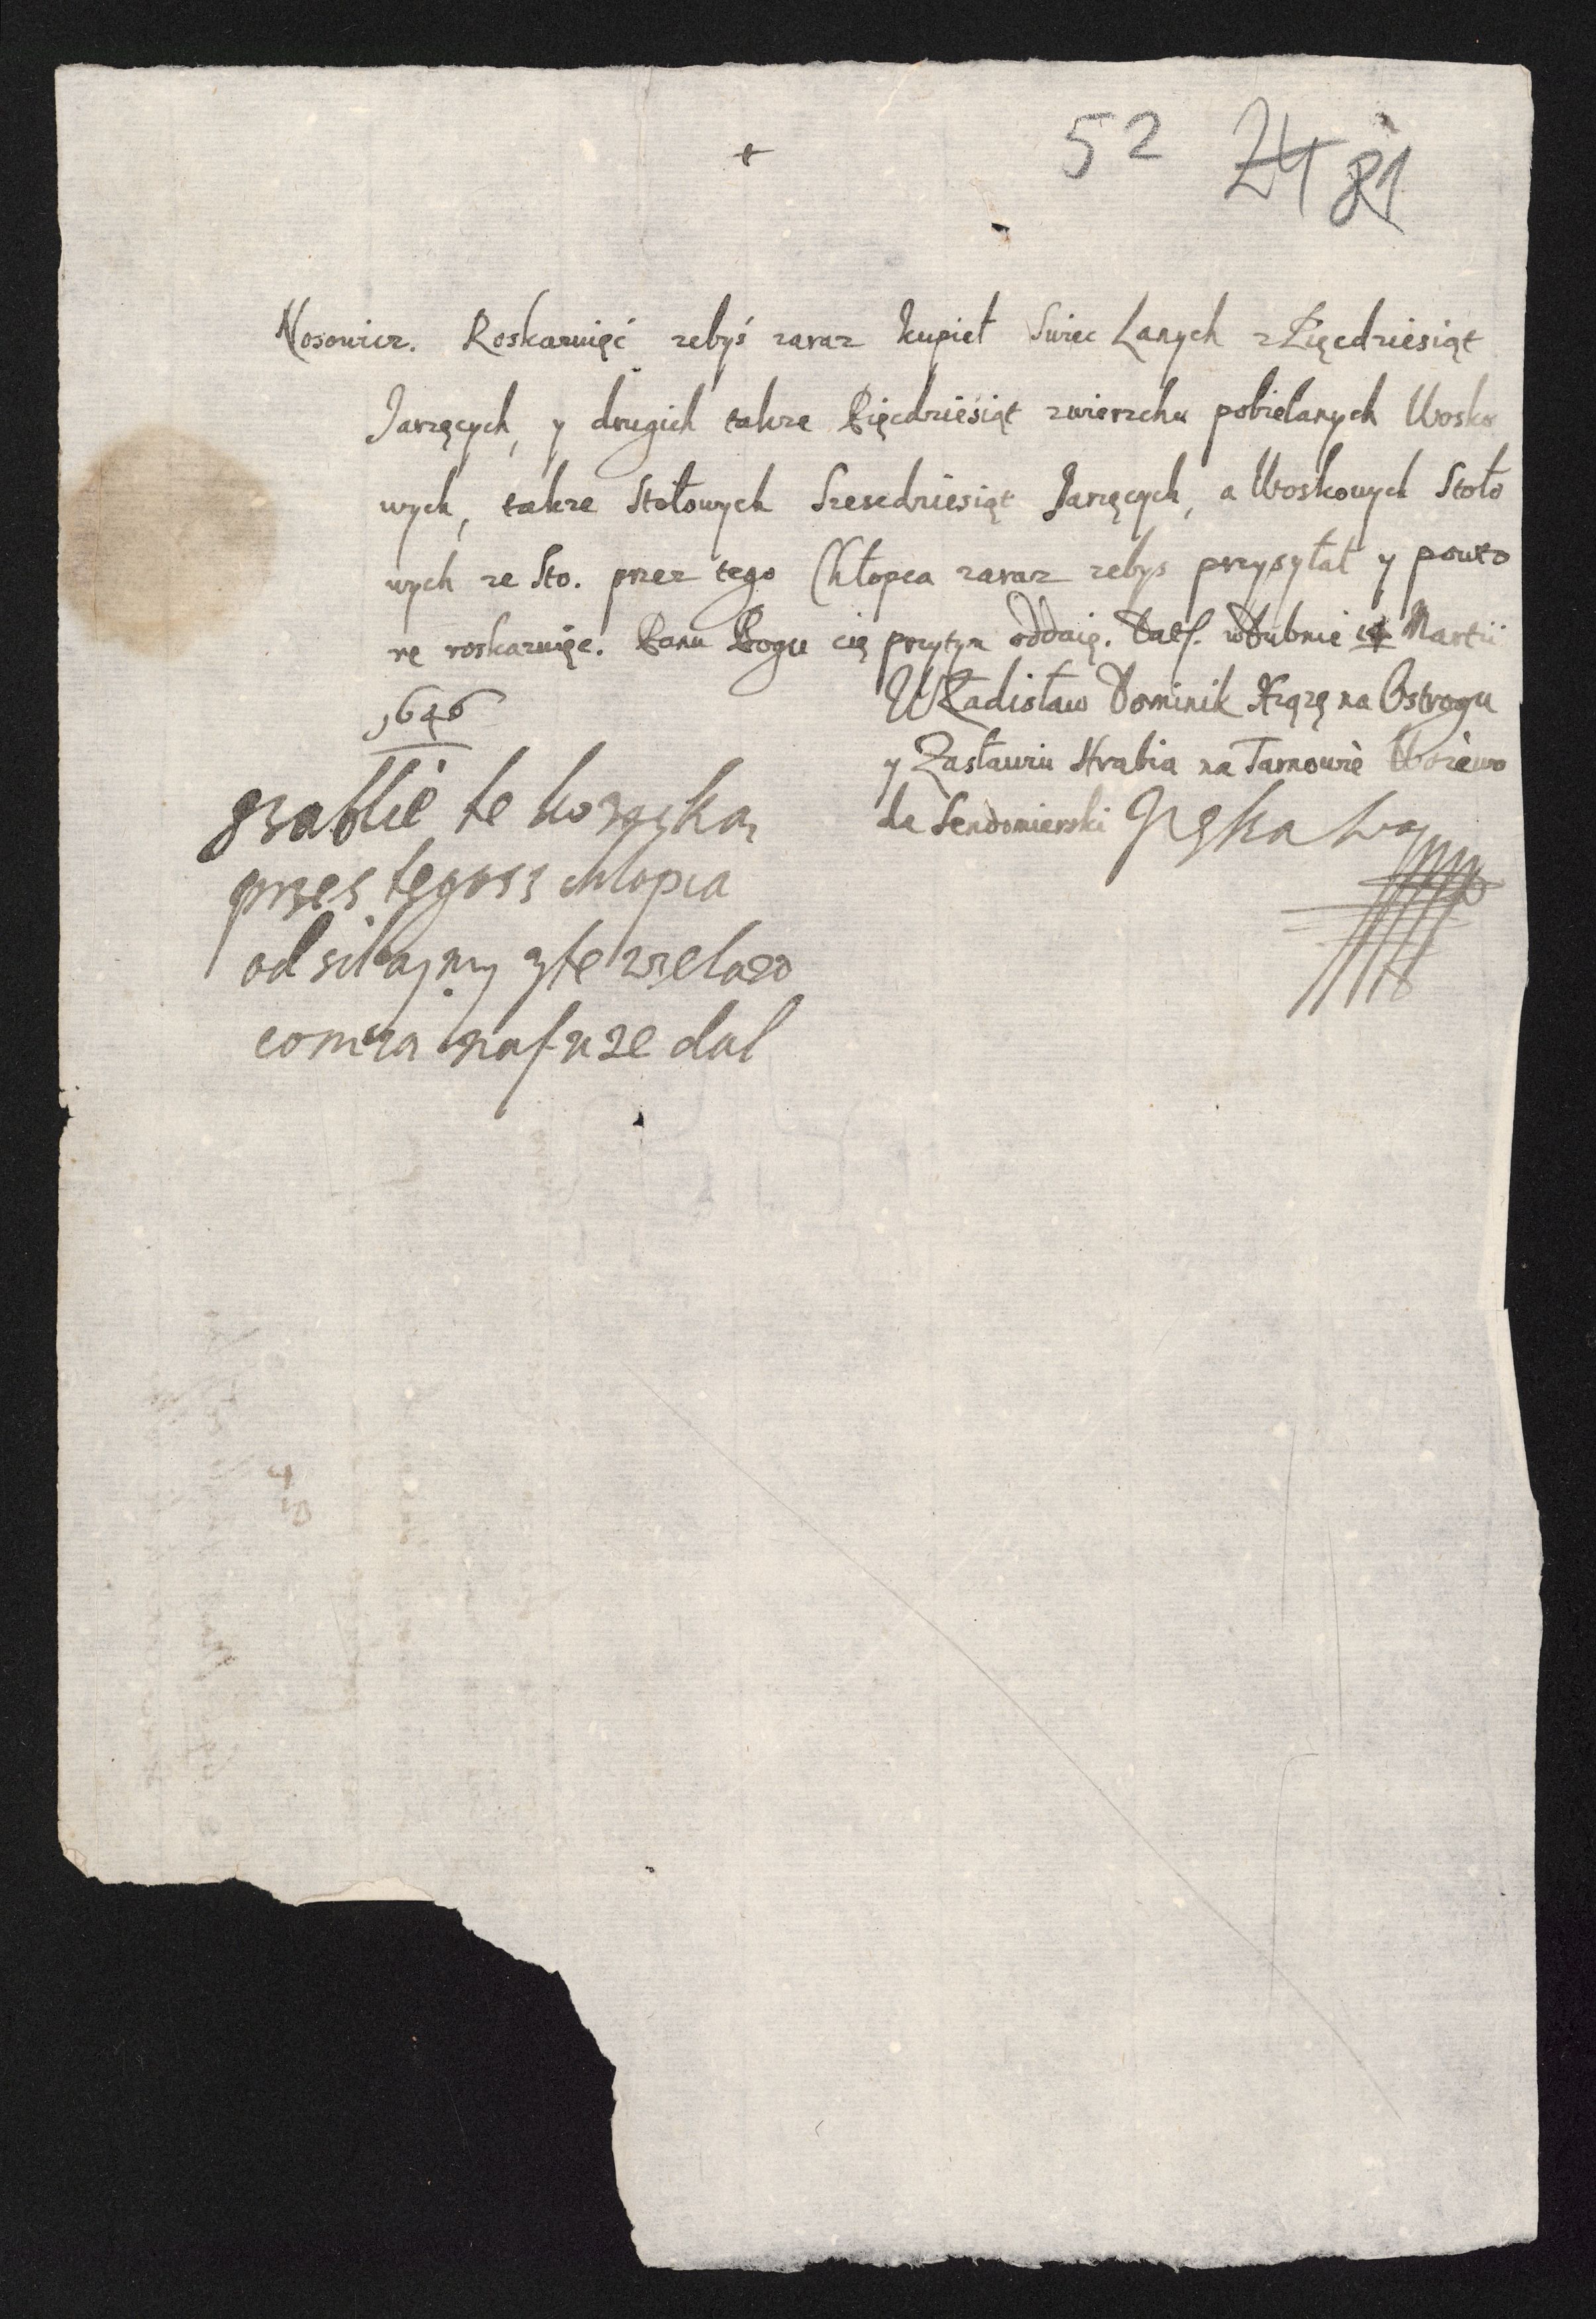 +
52 24 81
Nosowicz. Roskazuięć zebyś zaraz kupieł Swiec Lanych z Pięcdziesiąt
Jarzęcych, y drugich takze Pięcdziesiąt zwierzchu pobielanych Wosko
wych, takze Stołowych Szescdziesiąt Jarzęcych, a Woskowych Stoło
wych ze Sto. przez tego Chłopca zaraz zebys przysyłał y powto
re roskazuięc. Panu Bogu cię przytym oddaię. Dat. w Dubnie 14 Martii
1646
Władisław Dominik Xzążę na Ostrogu
y Zasławiu Hrabia na Tarnowie Woiewo
da Sendomierski Ręka Swą
szable te
przes tegosz chłopca
od